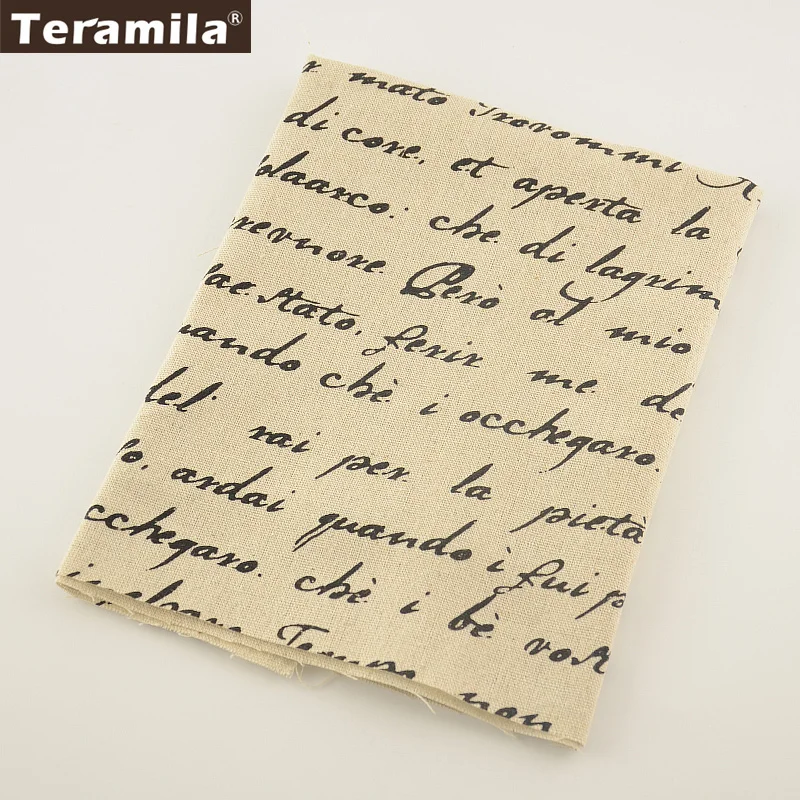 Teramila®
mato Trovommi
di core. et aperta la
che di lagrim
Però al mio
Stato. ferir me. de
uando chè i occhegaro.
del rai per la pietà
lo. andai quando ì fui p
cchegaro. chè i bè vost
Tempo non